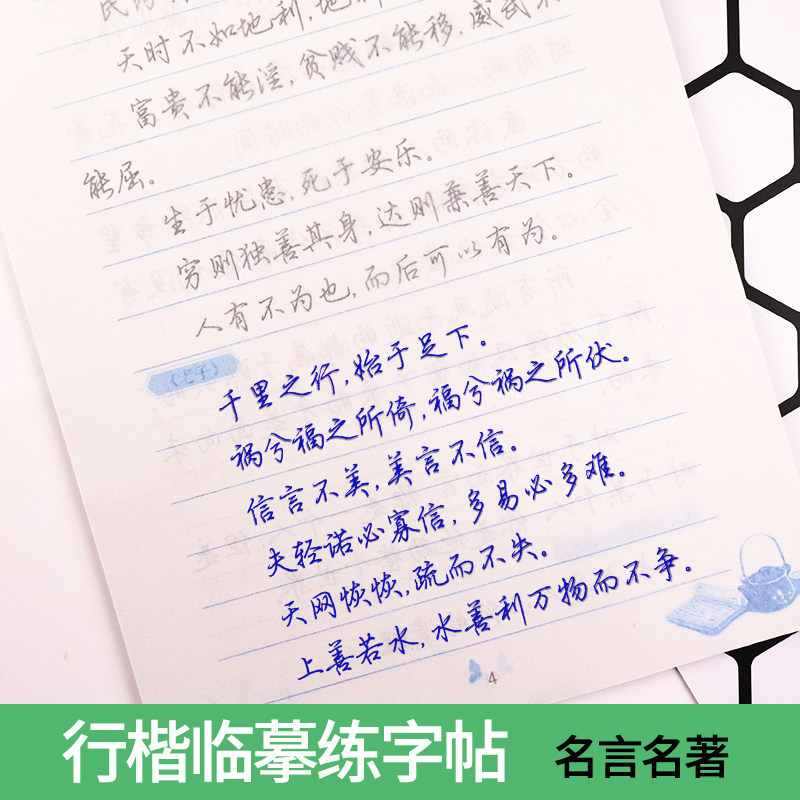 天时不如地利,地
富贵不能淫,贫贱不能移,威武不
能屈。
生于忧患,死于安乐。
穷则独善其身,达则兼善天下。
人有不为也,而后可以有为。
《老子》
千里之行,始于足下。
祸兮福之所倚,福兮祸之所伏。
信言不美,美言不信。
夫轻诺必寡信,多易必多难。
天网恢恢,疏而不失。
上善若水,水善利万物而不争。
4
行楷临摹练字帖 名言名著